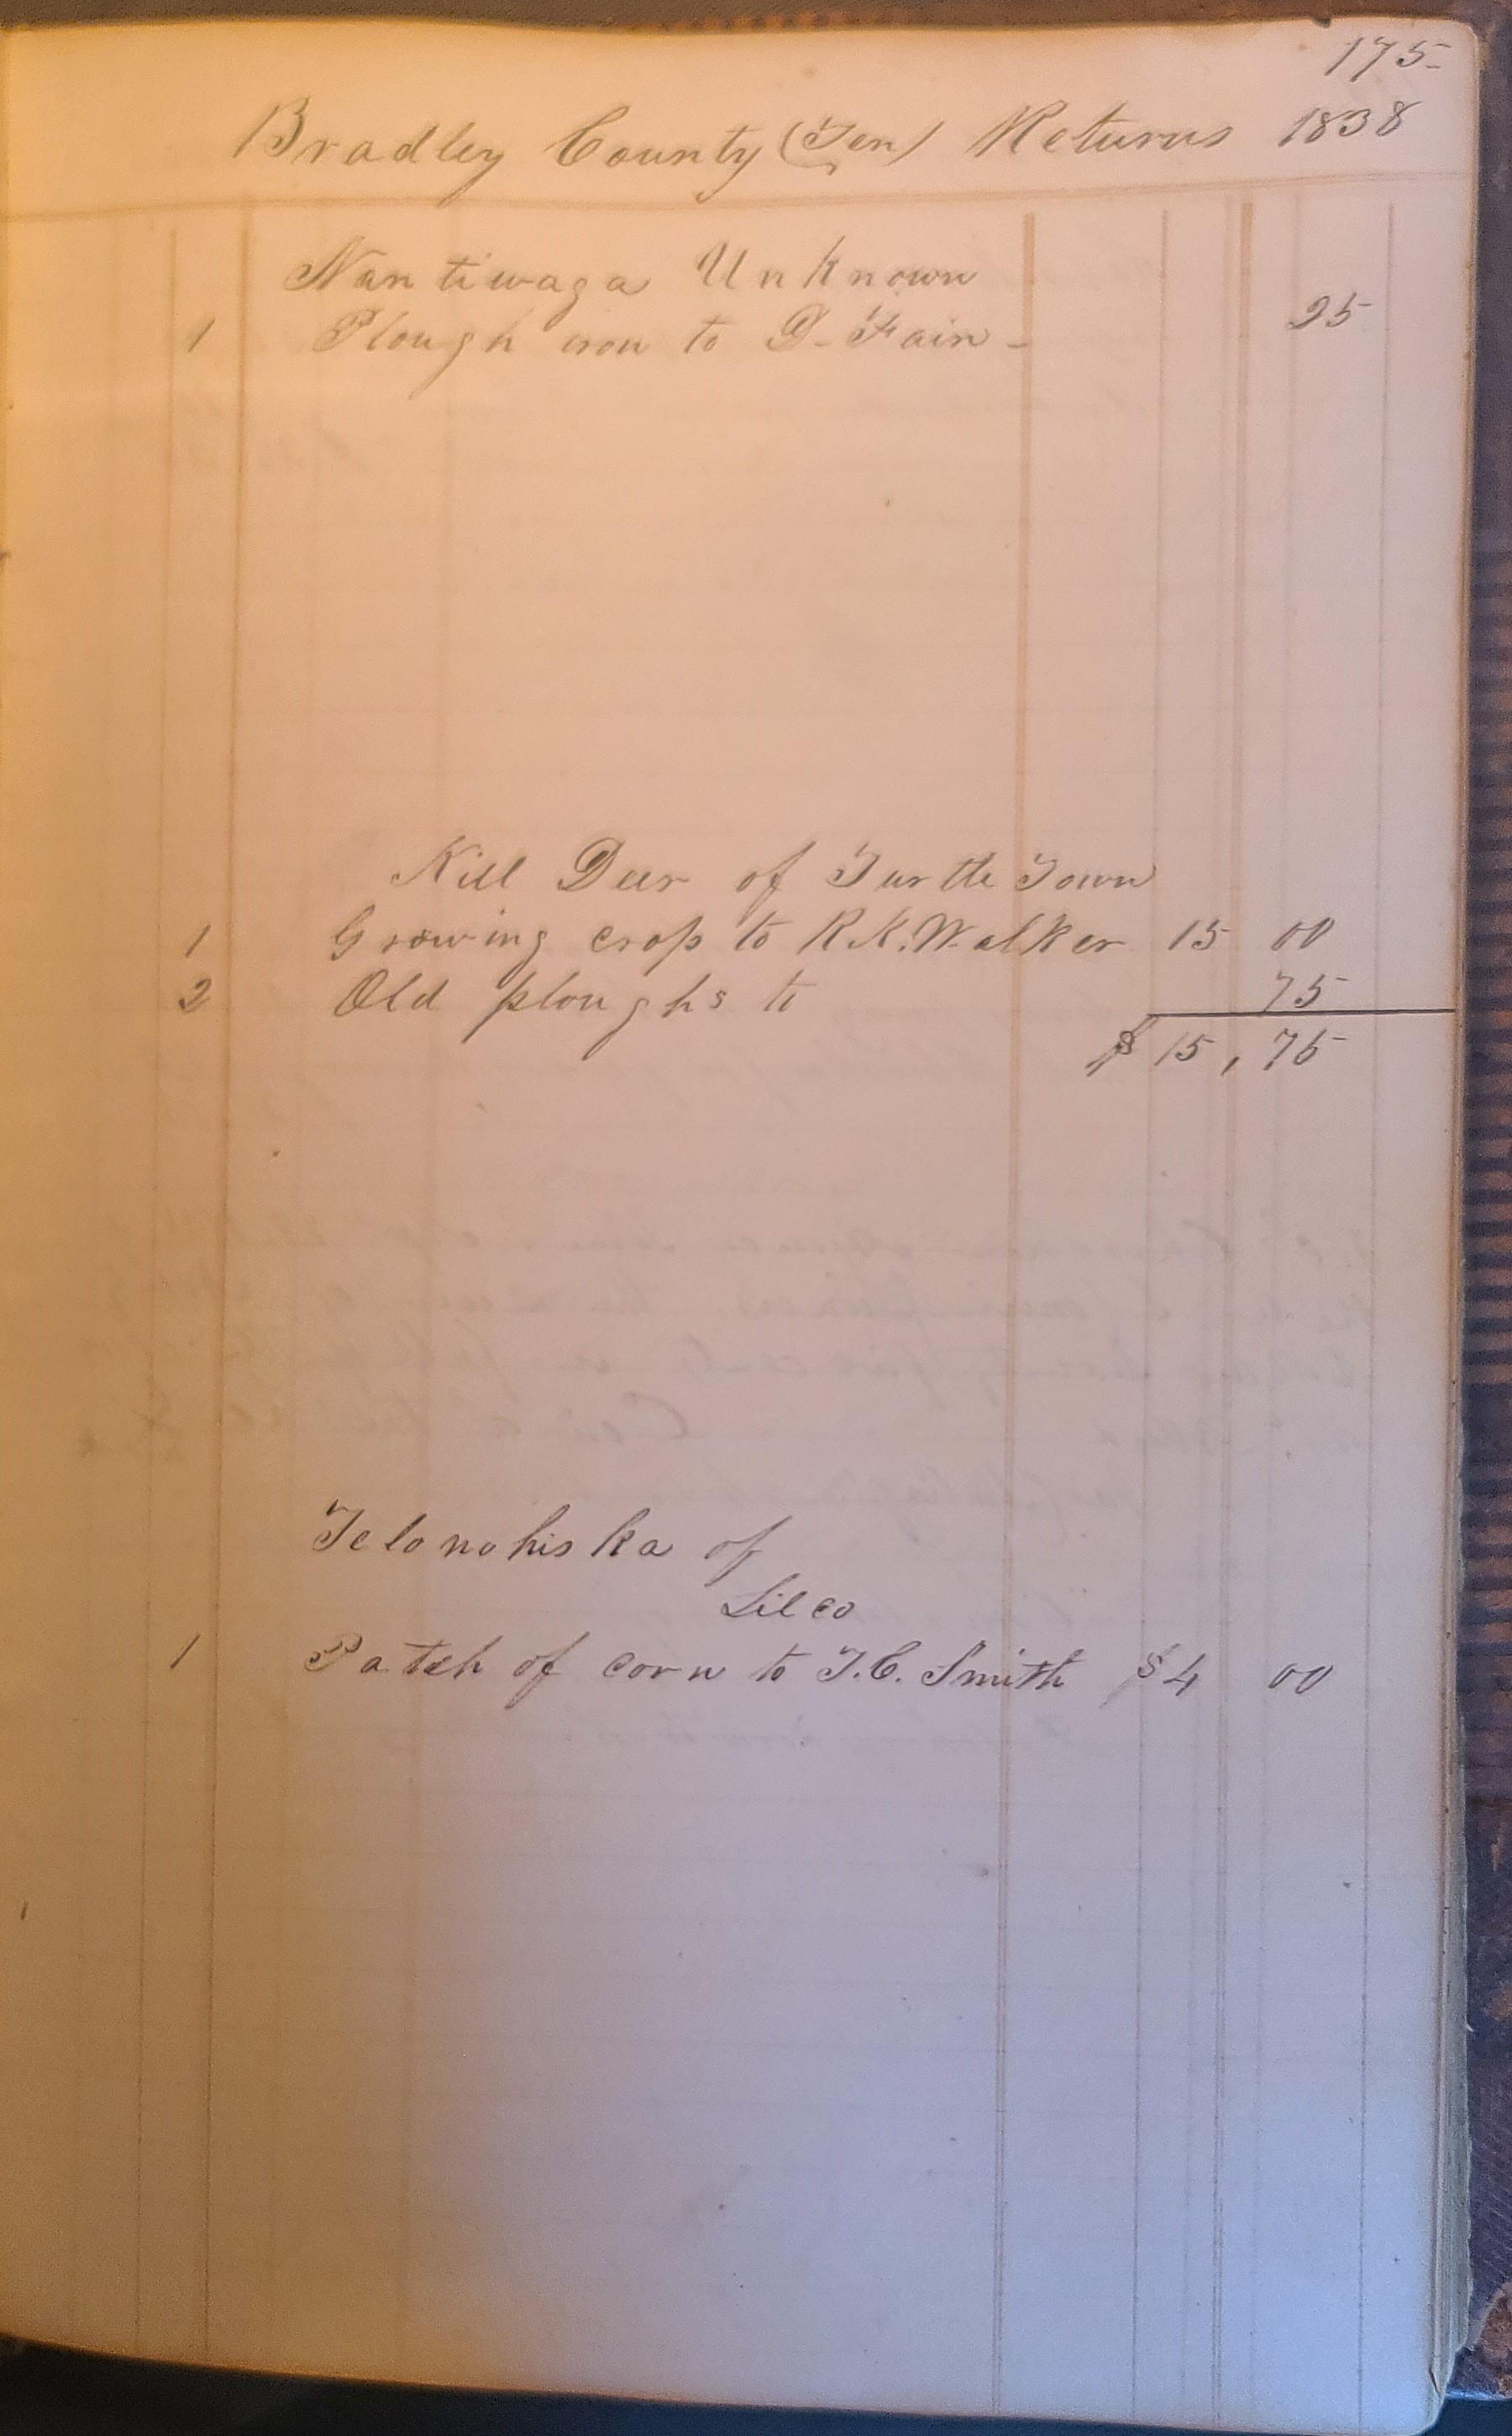 175
Bradley County (Ten) Returns 1838
Nantiwaga Unknown
1 Plough iron to D. Fain - 25
Kill Deer of Turtle Town
1 Growing crop to R.K. Walker 15 00
2 Old ploughs to 75
$15,75
Telonohiska of
Lileo
1 Patch of corn to T.C. Smith $4 00